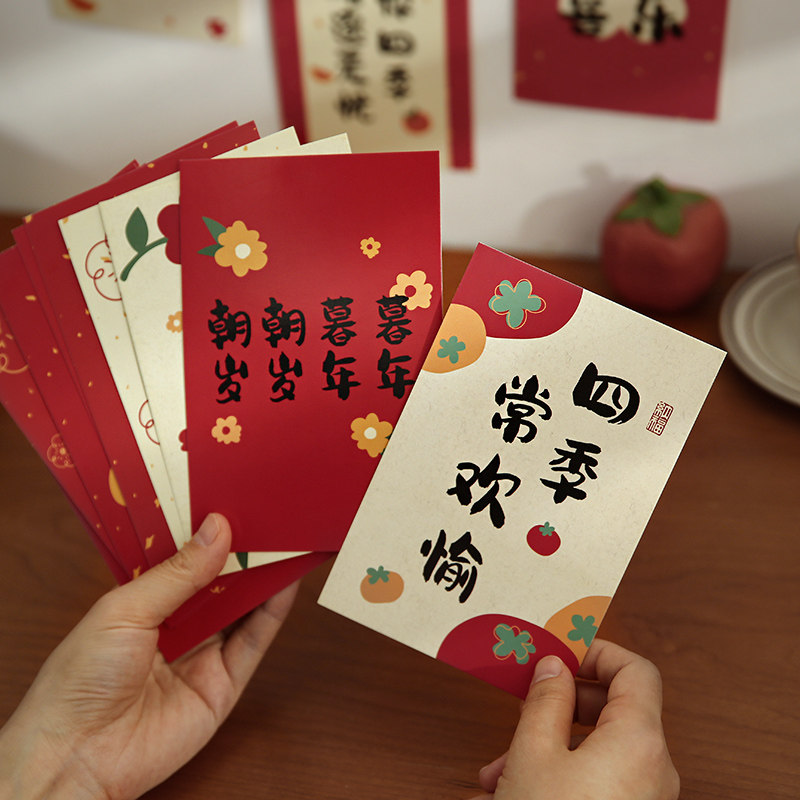 暮暮朝朝
年年岁岁
四季
常欢愉
纳福
四季
无忧
喜乐